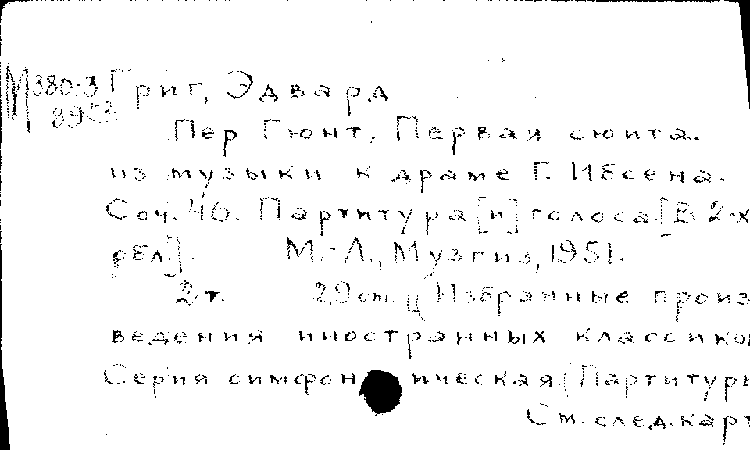 М380:3 Григ, Эдвард
89
Пер Гюнт. Первая сюита.
из музыки к драме Г. Ибсена.
Соч. 46. Партитура [и] голоса. [В 2-х
рбл.]. М.-Л., Музгиз, 1951.
2 т. 29 cm. Избранные произ
ведения иностранных классиков
Серия симфоническая (Партитуры
См. след. карт